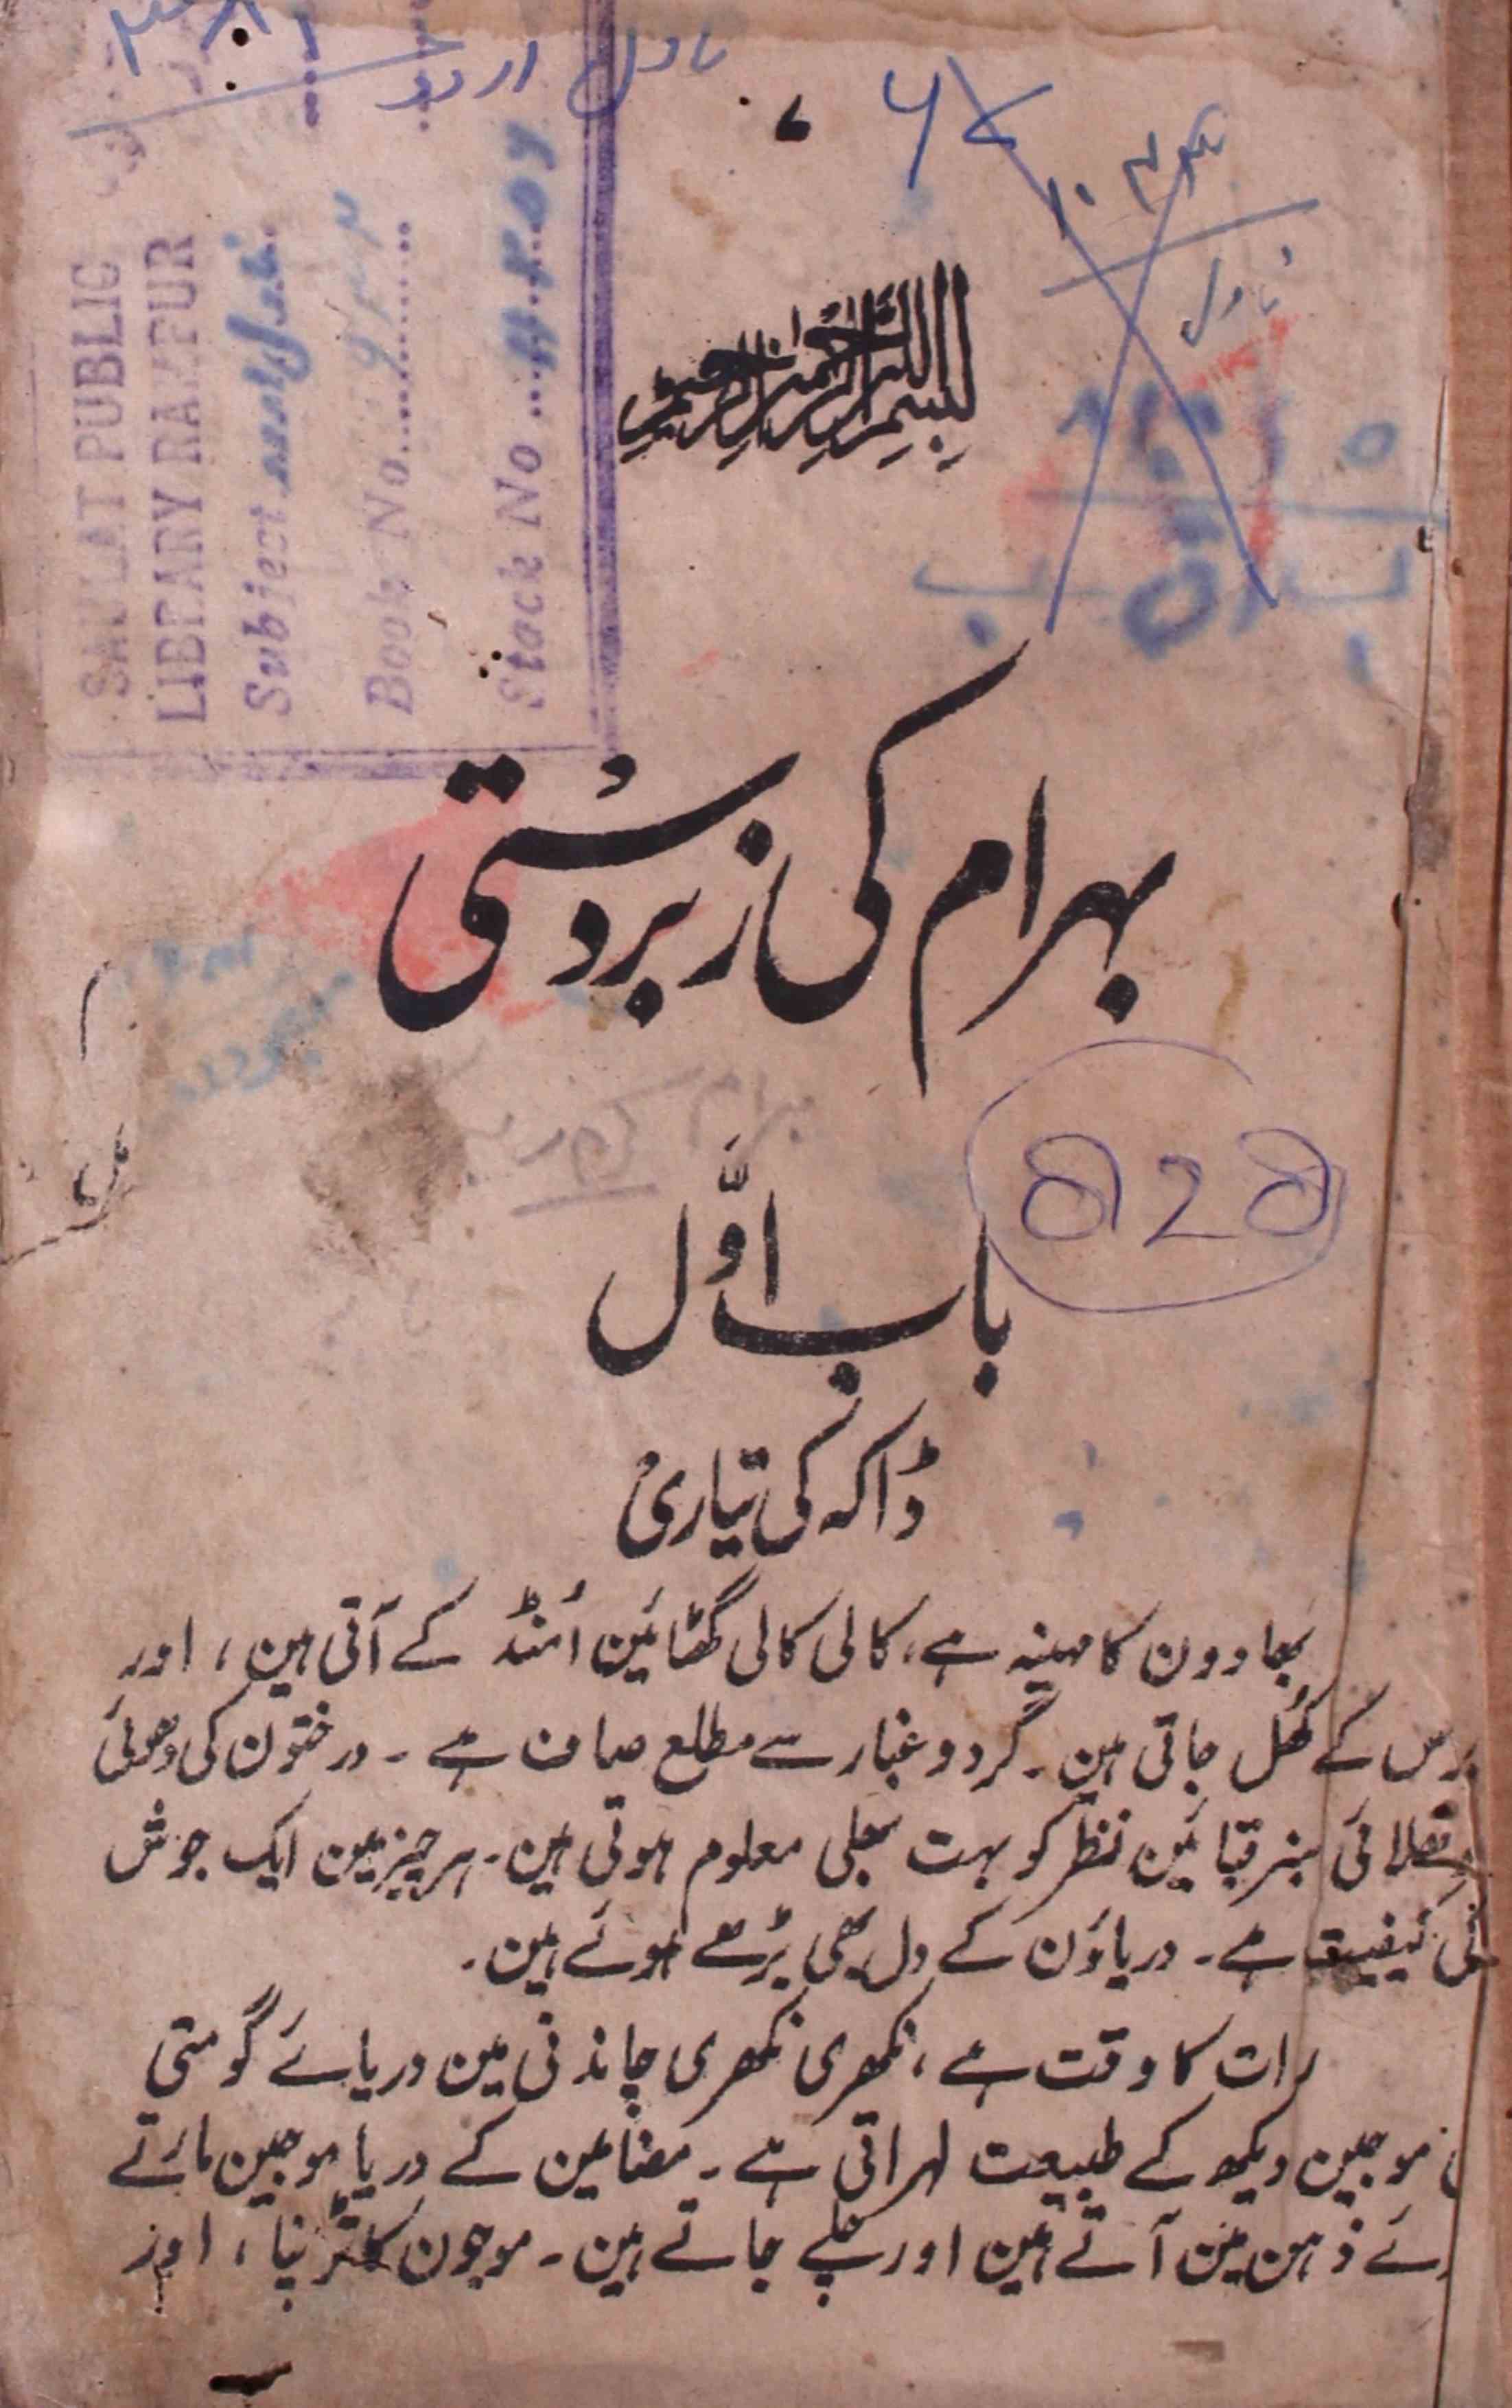 ناول اردو
۶۷
۱۰۳۴
ناول
SAULAT PUBLIC
LIBRARY RAMPUR
Subject
Book No.
Stock No
بسم الله الرحمن الرحيم
بہرام کی زبردستی
باب اوّل
ڈاکہ کی تیاری
بھادون کا مہینہ ہے، کالی کالی گھٹائین اُمنڈ کے آتی ہین، اور
برس کے کُھل جاتی ہین۔ گرد و غبار سے مطلع صاف ہے۔ درختون کی دھوئی
دھلائی سبز قبائین نظر کو بہت بھلی معلوم ہوتی ہین۔ ہر چیز مین ایک جوش
کی کیفیت ہے۔ دریاؤن کے دل بھی بڑھے ہوئے ہین۔
رات کا وقت ہے، نکھری نکھری چاندنی مین دریائے گومتی
موجین دیکھ کے طبیعت لہراتی ہے۔ مضامین کے دریا موجین مارتے
ذہن مین آتے ہین اور نکلے جاتے ہین۔ موجون کا تڑپنا، اور